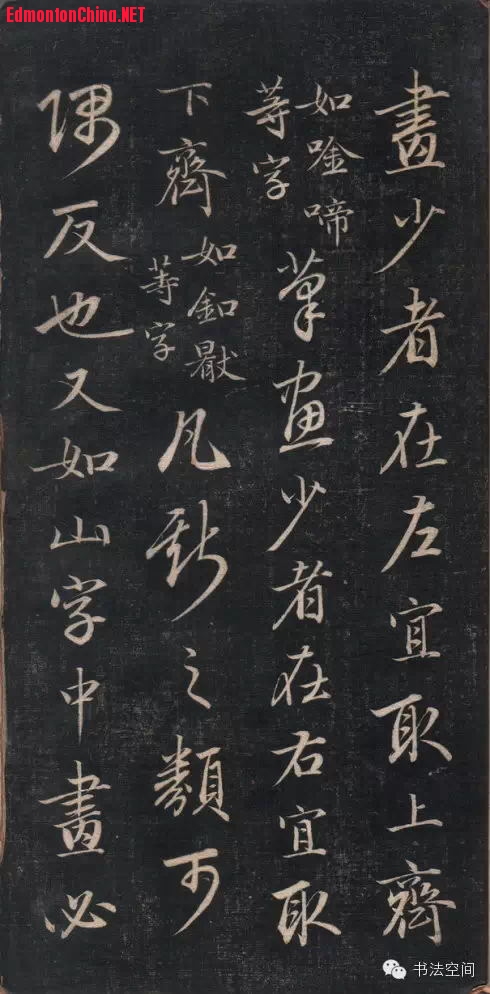 EdmontonChina.NET
畫少者在左宜取上齊
如唫啼
等字
筆画少者在右宜取
下齊
如釦
等字
凡斯之類可
隅反也又如山字中畫必
书法空间